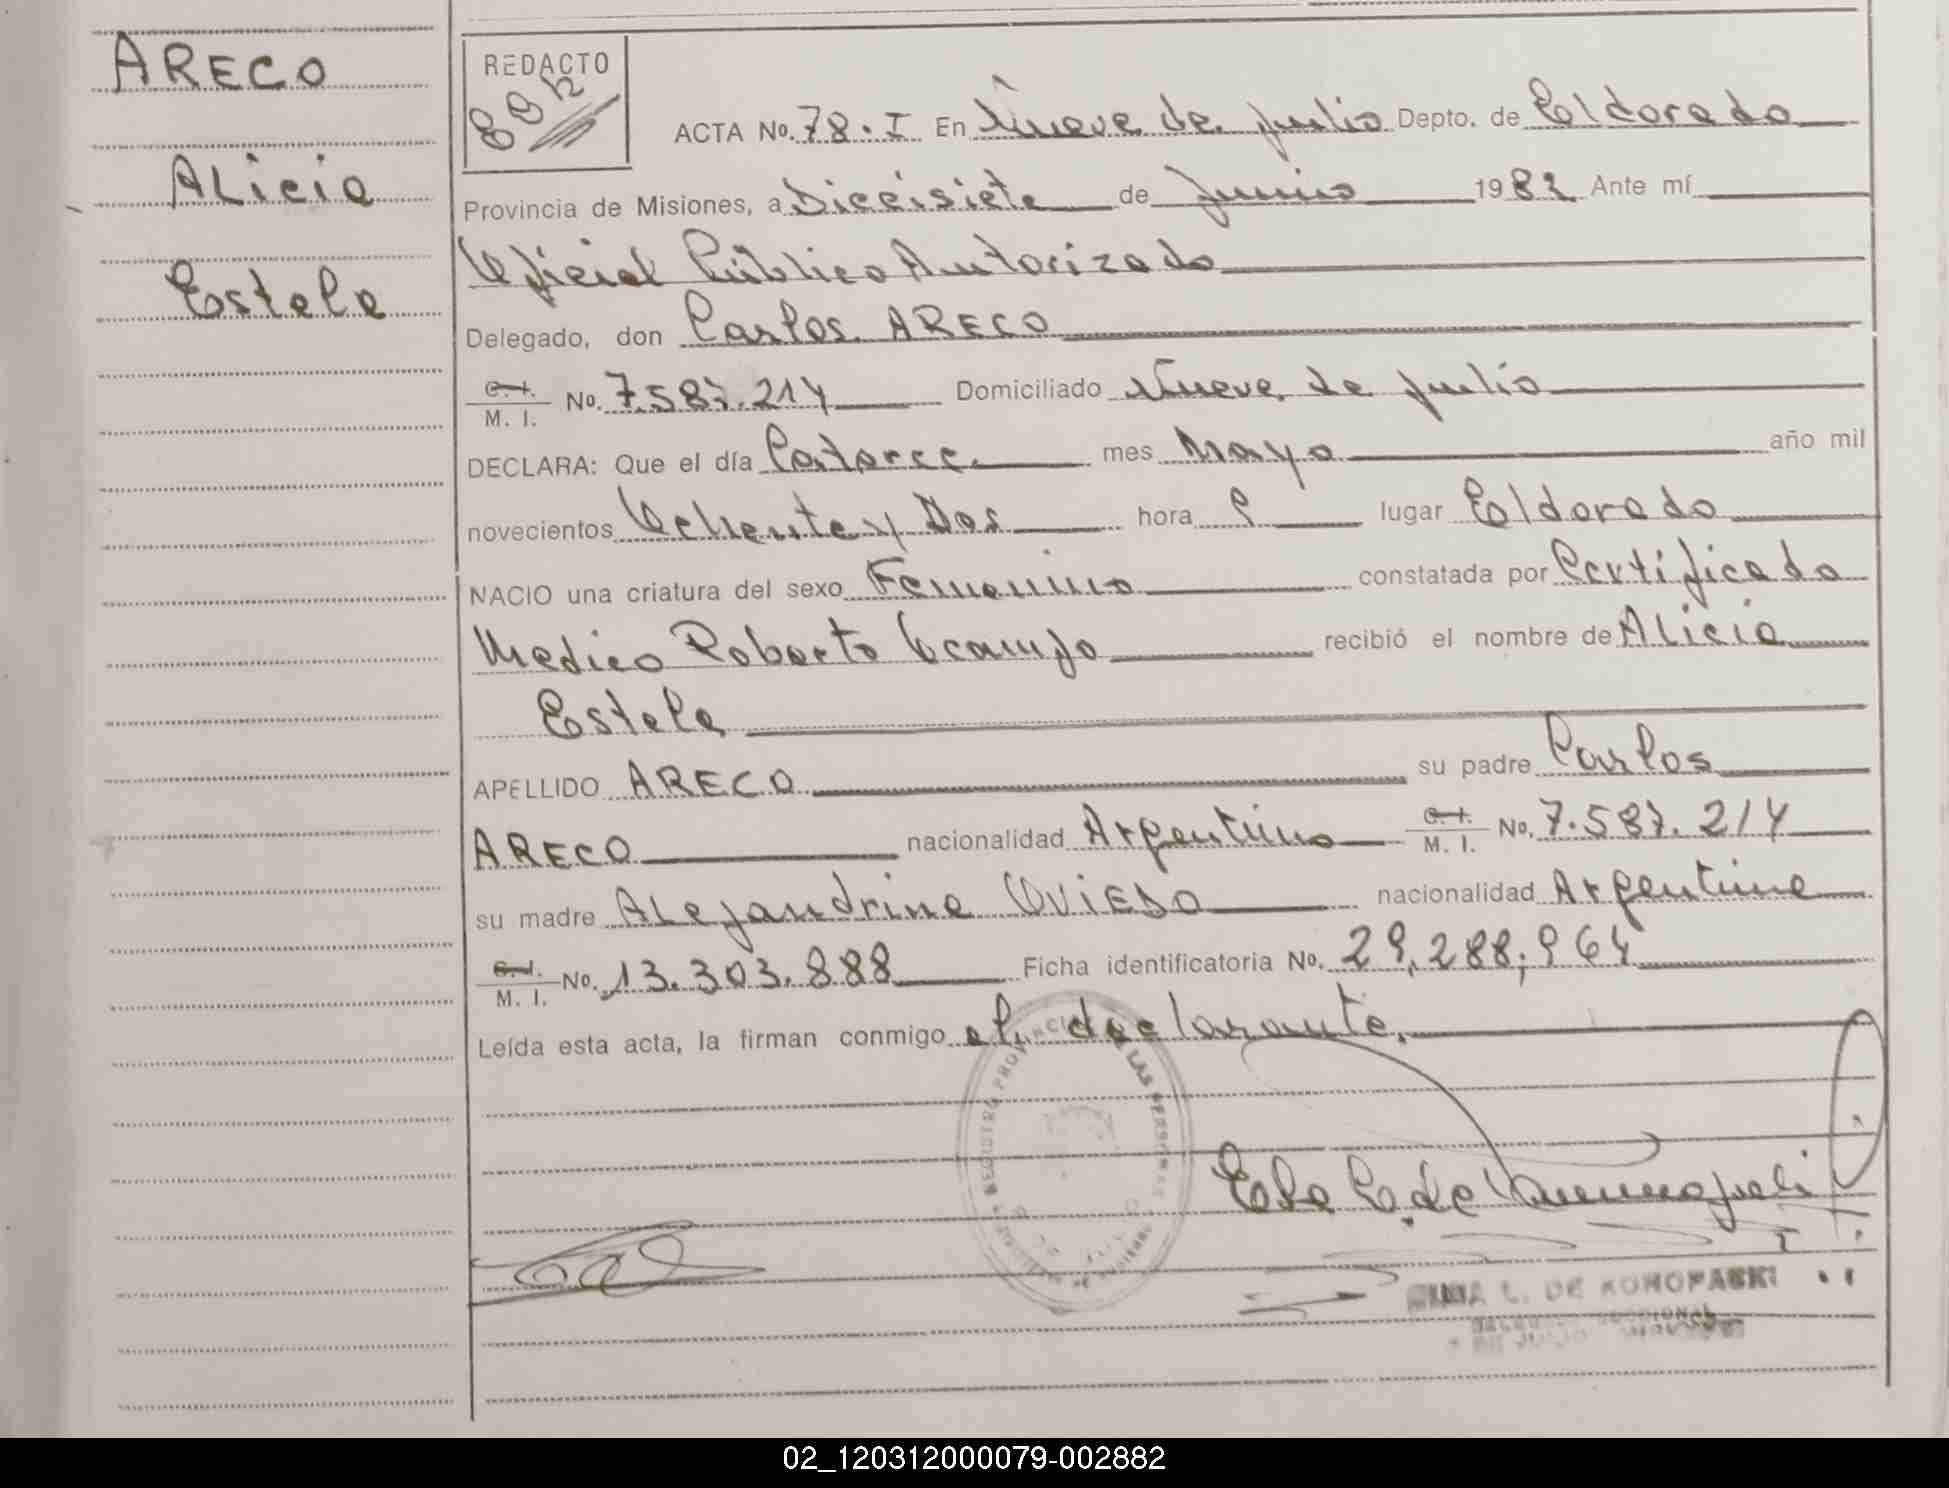 ARECO
Alicia
Estela
REDACTO
ACTA No. 78 - I En Nueve de julio Depto. de Eldorado
Provincia de Misiones, a Diecisiete de junio 1982 Ante mí
Oficial Público Autorizado
Delegado, don Carlos ARECO
C. I. / M. I. No. 7.587.214 Domiciliado Nueve de julio
DECLARA: Que el día Catorce mes Mayo año mil
novecientos Ochenta y Dos hora 9 lugar Eldorado
NACIO una criatura del sexo Femenino constatada por Certificado
Medico Roberto Ocampo recibió el nombre de Alicia
Estela
APELLIDO ARECO su padre Carlos
ARECO nacionalidad Argentino C. I. / M. I. No. 7.587.214
su madre Alejandrina OVIEDO nacionalidad Argentina
C. I. / M. I. No. 13.303.888 Ficha identificatoria No. 29,288,964
Leída esta acta, la firman conmigo el declarante.
REGISTRO PROVINCIAL DE LAS PERSONAS
L. DE KONOPASKI
02_120312000079-002882